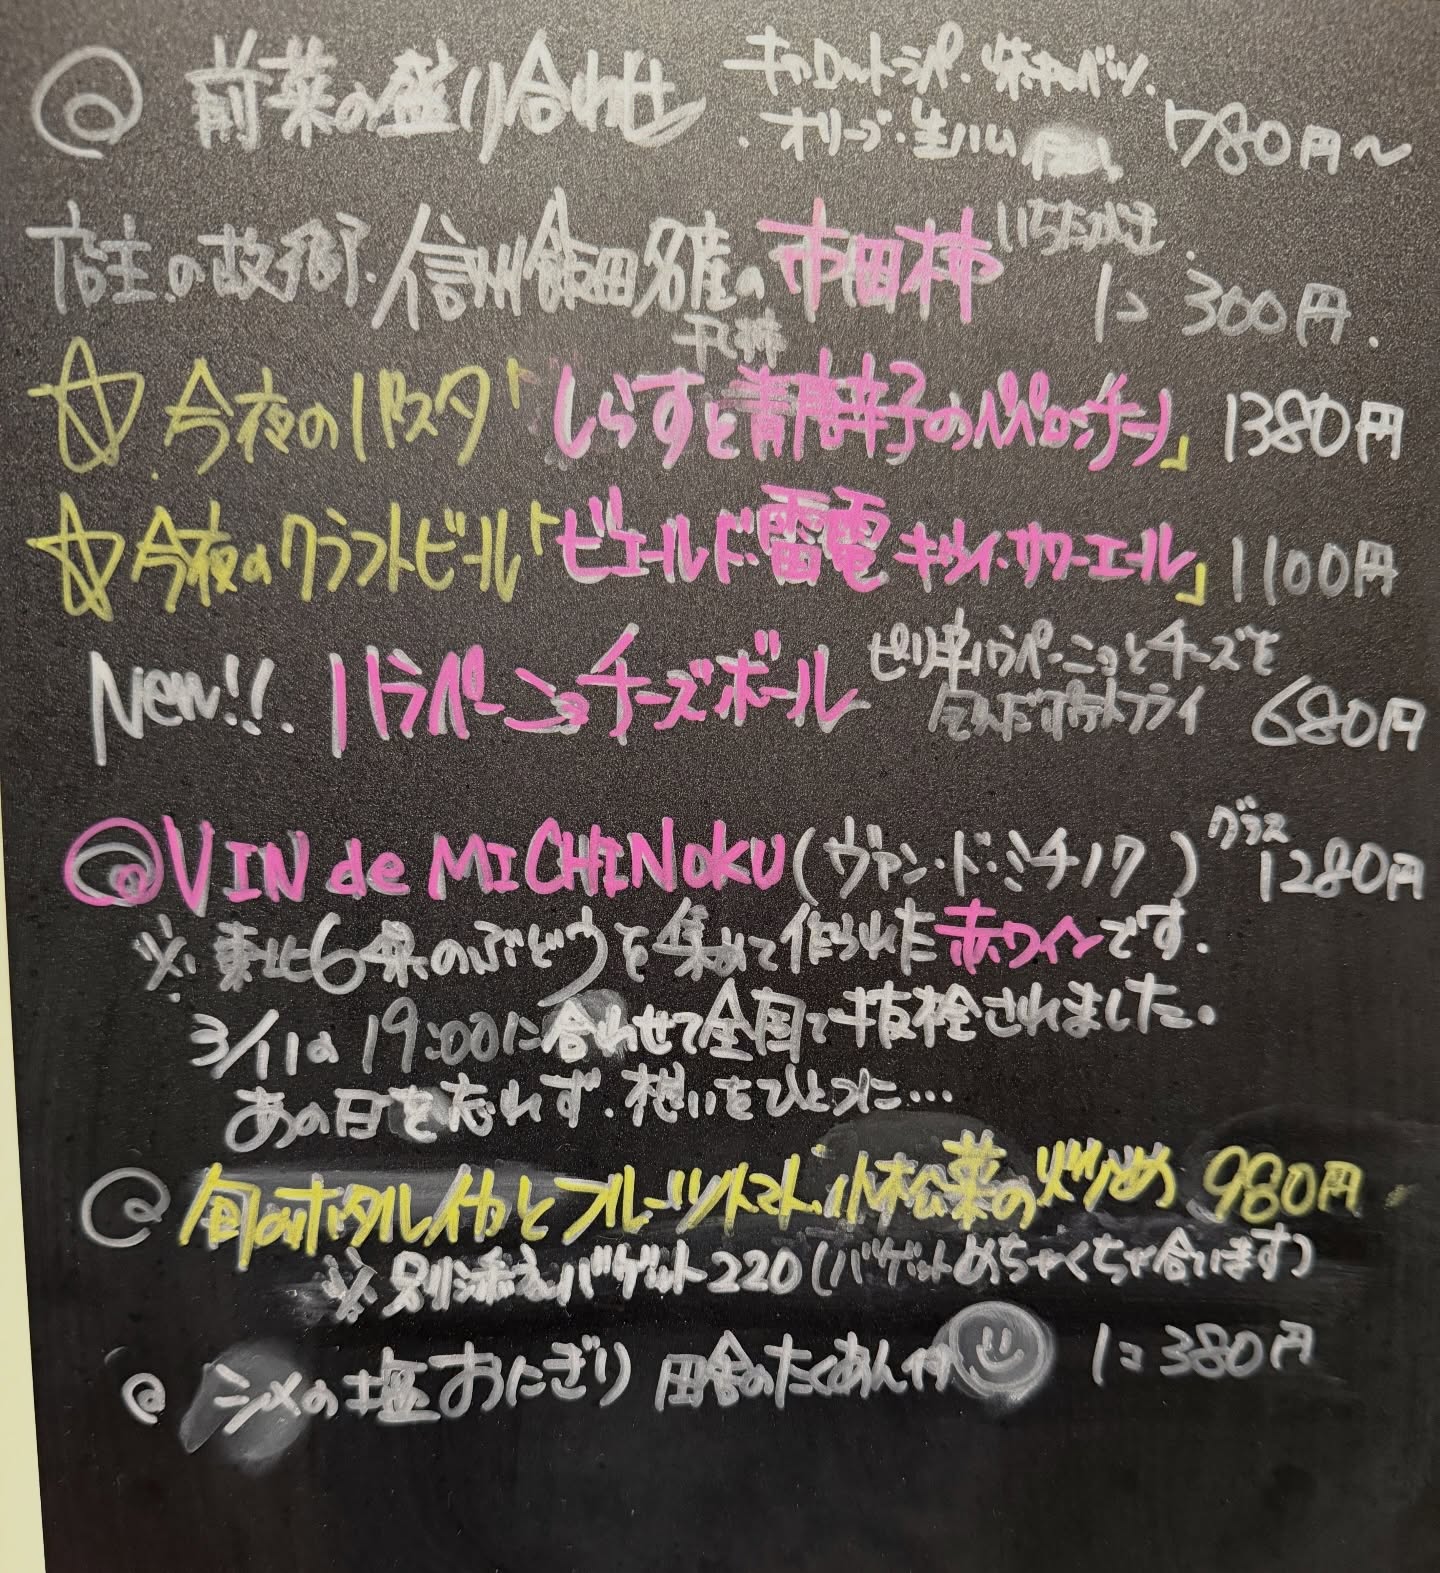 前菜の盛り合わせ キャロットラペ・紫キャベツ・オリーブ・生ハム 780円～
店主の故郷・信州飯田名産の市田柿 いちだがき 1コ 300円
干し柿
☆今夜のパスタ「しらすと青唐辛子のペペロンチーノ」1380円
☆今夜のクラフトビール「ビエールド・雷電 キウイ・サワーエール」1100円
New!! ハラペーニョチーズボール ピリ辛ハラペーニョとチーズを包んだポテトフライ 680円
VIN de MICHINOKU (ヴァン・ド・ミチノク) グラス 1280円
※東北6県のぶどうを集めて作られた赤ワインです。
3/11の19:00に合わせて全国で抜栓されました。
あの日を忘れず・想いをひとつに…
旬のホタルイカとフルーツトマト、小松菜の炒め 980円
※別添えバゲット220(バゲットめちゃくちゃ合います)
シメの塩おにぎり 田舎のたくあん付 1コ380円